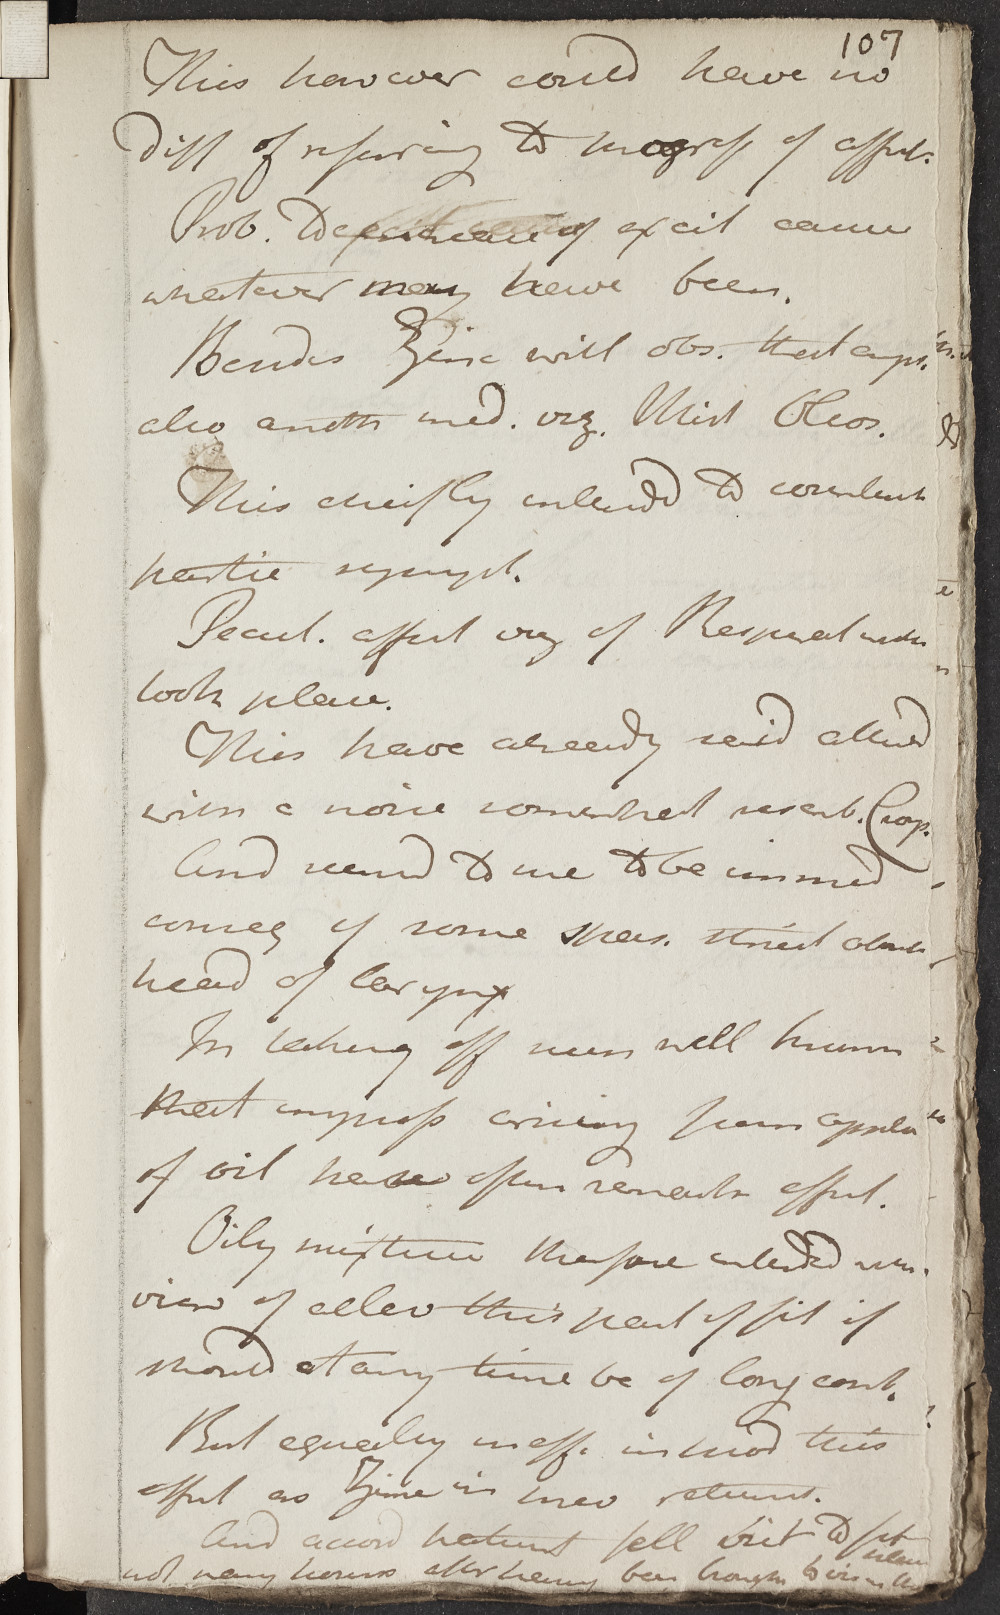 107
This however could have no
Diff of referring to progress of affect.
Prob. to of excit cause
whatever may have been.
Besides Zinc will obs. that emp.
also anoth med. viz. Mist Oleos.
This cheifly intend to counteract
partic sympt.
Pecul. affect viz of Respirat
took place.
This have already said attend
with a noise somewhat resemb. Crop.
And seemd to me to be immed
conseq of some spas. strict about
head of larynx
In taking off such well known
that impress arising from applic
of oil have often remark effect.
Oily mixture therefore intended with
view of allev this part of fit if
should at any time be of long cont.
But equally ineff. in prod this
effect as Zinc in prev return.
And accord patient fell vict to fit
not many hours after having been brought to